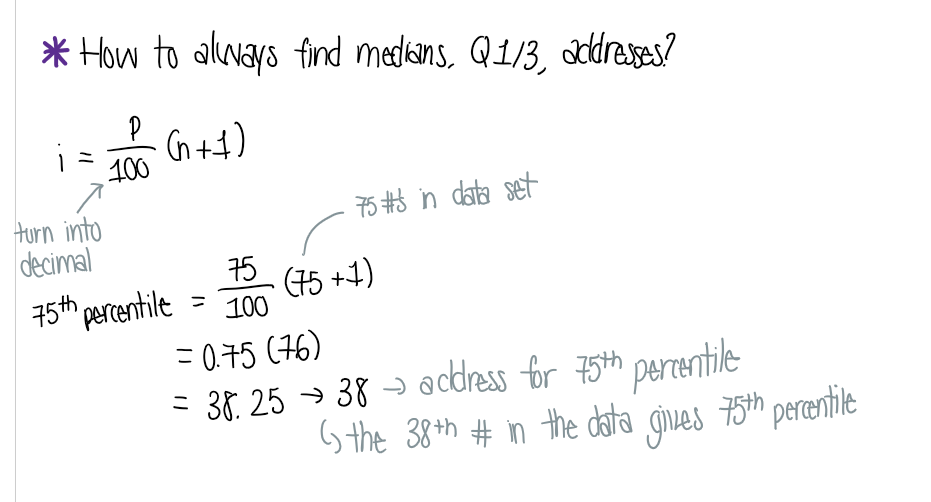 * How to always find medians, Q1/3, addresses?
i = P/100 (n+1)
turn into decimal
75 #s in data set
75th percentile = 75/100 (75+1)
= 0.75 (76)
= 38.25 → 38 → address for 75th percentile
↳ the 38th # in the data gives 75th percentile